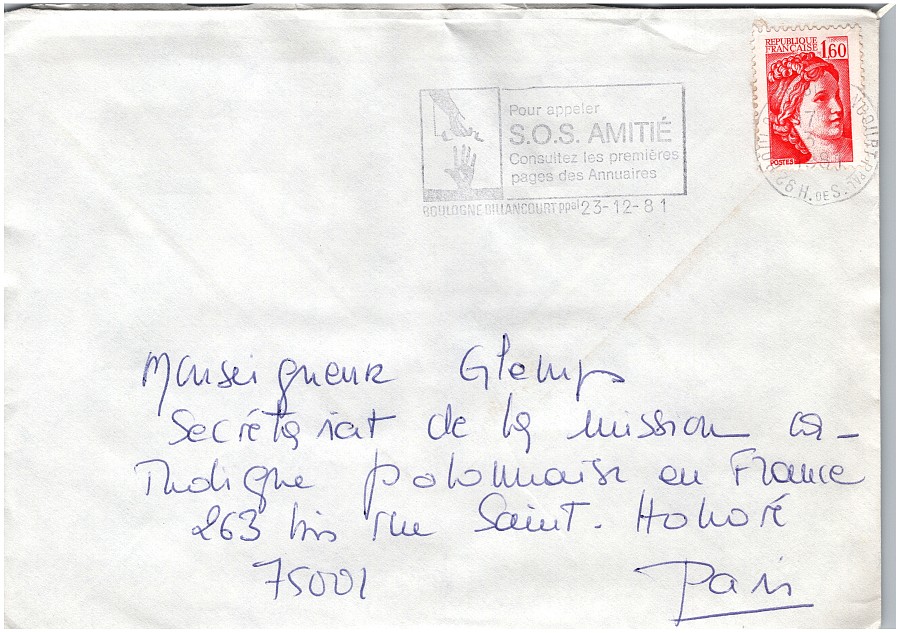 REPUBLIQUE
FRANCAISE 1,60
POSTES
Pour appeler
S.O.S. AMITIÉ
Consultez les premières
pages des Annuaires
BOULOGNE BILLANCOURT ppal 23-12-81
92 H. DE S.
Monseigneur Glemp
Secrétariat de la mission ca-
tholique polonnaise en France
263 bis rue Saint-Honoré
75001
Paris